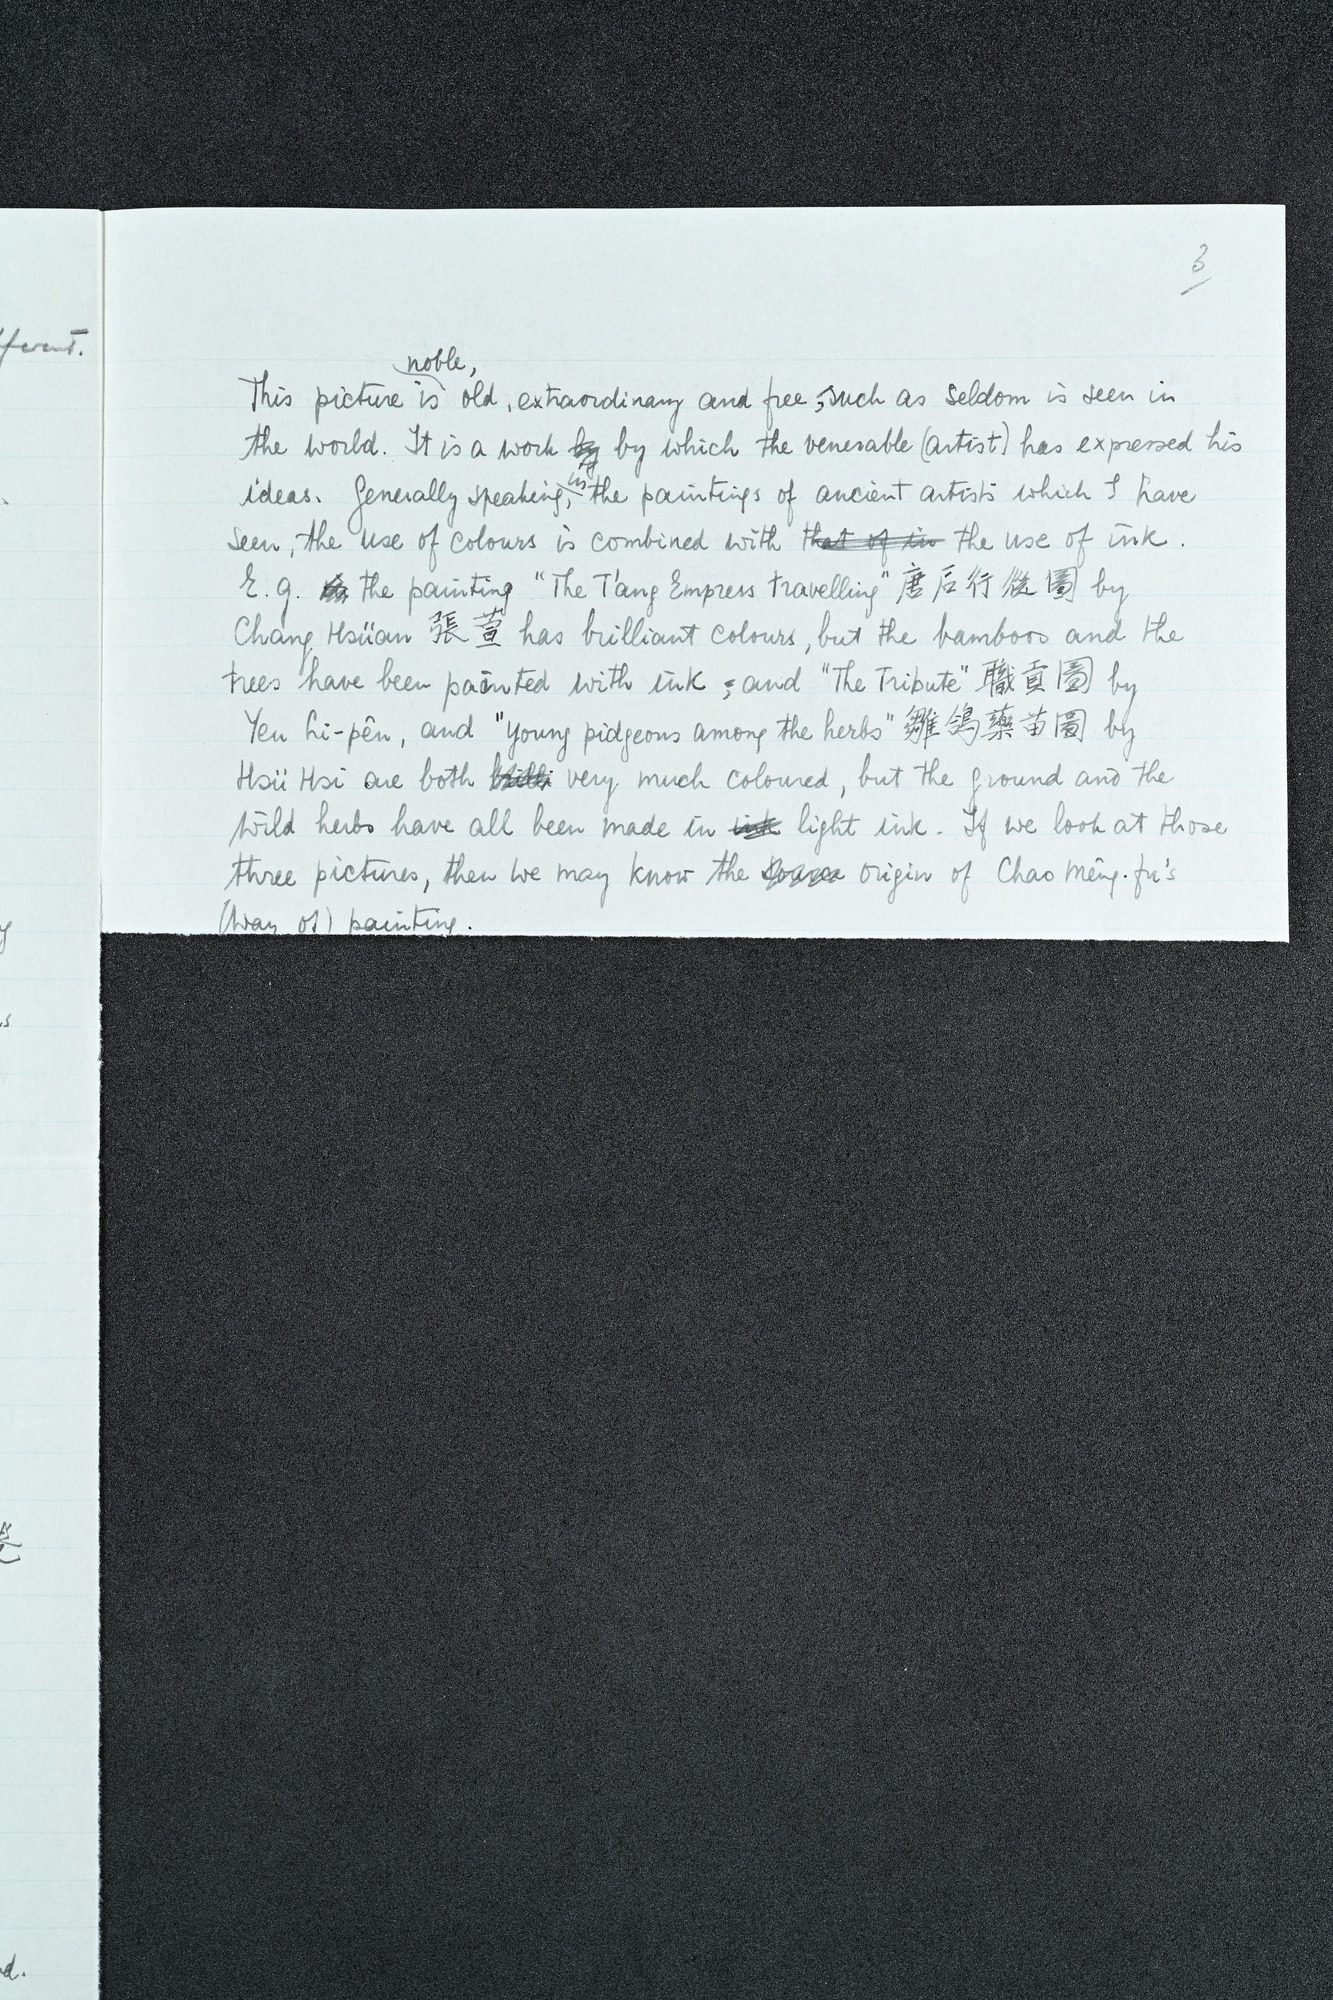 3
noble,
This picture is old, extraordinary and free, such as seldom is seen in
the world. It is a work by by which the venerable (artist) has expressed his
ideas. Generally speaking, in the paintings of ancient artists which I have
seen, the use of colours is combined with that of in the use of ink.
E.g. the painting "The T'ang Empress travelling" 唐后行從圖 by
Chang Hsüan 張萱 has brilliant colours, but the bamboos and the
trees have been painted with ink; and "The Tribute" 職貢圖 by
Yen Li-pên, and "Young pidgeons among the herbs" 雛鴿藥苗圖 by
Hsü Hsi are both very much coloured, but the ground and the
wild herbs have all been made in ink light ink. If we look at those
three pictures, then we may know the source origin of Chao Mêng-fu's
(way of) painting.